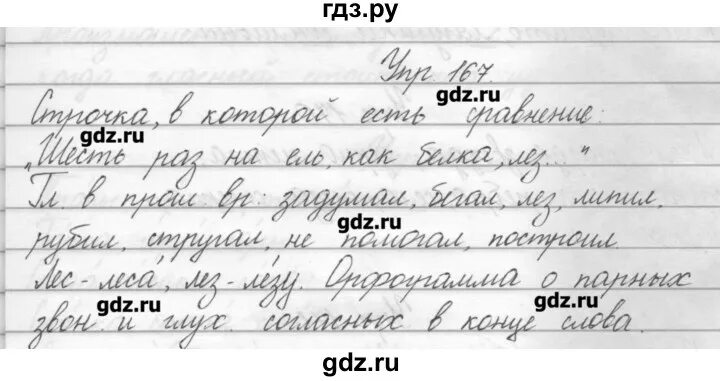 гдз.ру
Упр. 167.
gdz.ru
Строчка, в которой есть сравнение:
gdz.ru
„Шесть раз на ель, как белка, лез..."
Гл. в прош. вр.: задумал, бегал, лез, липил,
gdz.ru
рубил, стругал, не помогал, построил.
Лес - леса, лез - лезу. Орфограмма о парных
gdz.ru gdz.ru
звон. и глух. согласных в конце слова.
gdz.ru